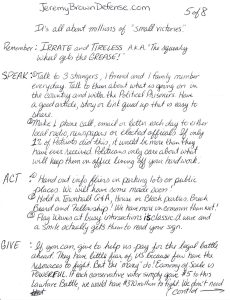 JeremyBrownDefense.com
5 of 8
It's all about millions of "small victories"
Remember: IRRATE and TIRELESS A.K.A. "The squeaky
wheel gets the GREASE!"
SPEAK: ① Talk to 3 strangers, 1 friend and 1 family member
everyday. Talk to them about what is going on in
the country and with the Political Prisoners. Have
a good article, story or link queued up that is easy to
share.
② Make 1 phone call, email or letter each day to either
local radio, newspaper or elected officials. If only
1% of Patriots did this, it would be more than they
have ever received. Politicians only care about what
will keep them in office living off your hard work.
ACT: ① Hand out info fliers in parking lots or public
places. We will have some made soon!
② Hold a Townhall Q&A, House or Block parties Break
Bread and Fellowship! We have more in common than not!
③ Flag Waving at busy intersections is classic. A wave and
a smile actually gets them to read your sign.
GIVE: If you can, give to help us pay for the legal battle
ahead. They have little fear of us because few have the
resources to fight. But the "many" do! Economy of Scale is
POWERFUL. If each conservative voter simply gave $5 to this
Lawfare Battle, we would have $370 million to fight. We don't need
cont'd